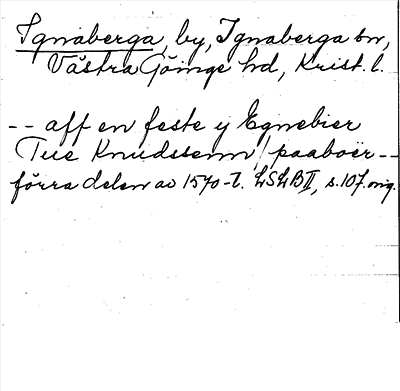 Ignaberga, by, Ignaberga sn,
Västra Göinge hd, Krist. l.
-- aff en feste y Egnebier
Tue Knudssenn / paaboer --
förra delen av 1570-t. LSLB II, s. 107. orig.